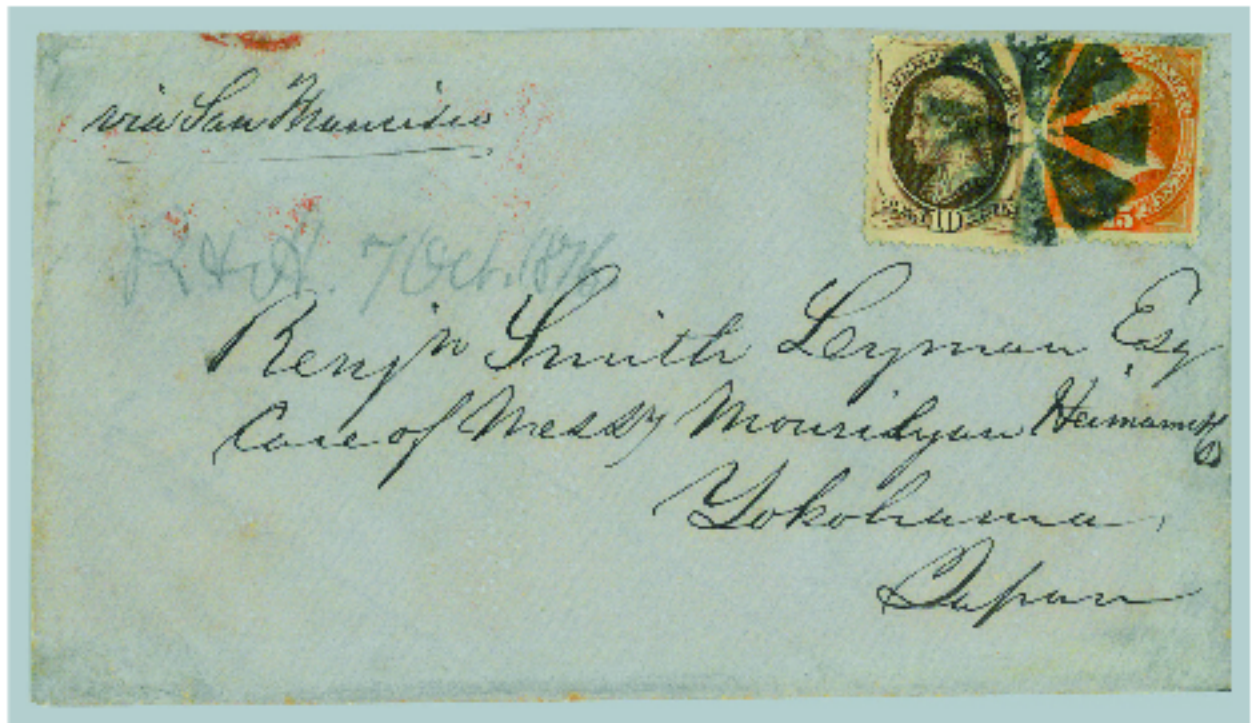 via San Francisco
10
15
7 Oct. 1876
Benj'n Smith Lyman Esq
Care of Messrs Mourilyan Heimann & Co
Yokohama,
Japan